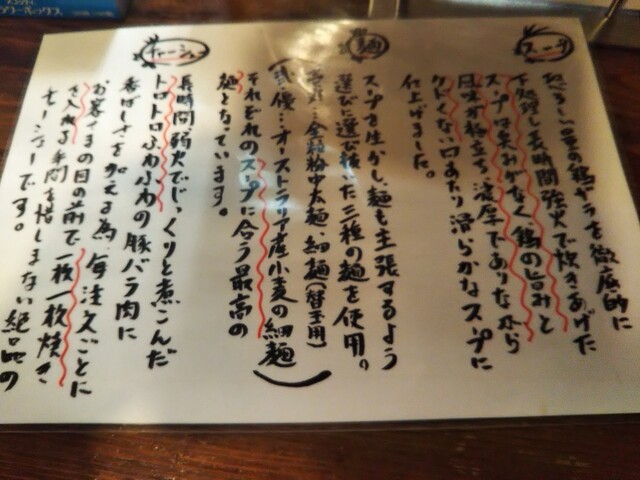 スープ
おびただしい量の鶏ガラを徹底的に
下処理し長時間強火で炊きあげた
スープは臭みがなく鶏の旨みと
風味が際立ち濃厚でありながら
クドくない口あたり滑らかなスープに
仕上げました。
麺
スープを生かし、麺も主張するよう
選びに選び抜いた三種の麺を使用。
全粒粉中太麺、細麺(替玉用)
オーストラリア産小麦の細麺)
それぞれのスープに合う最高の
麺となっています。
チャーシュー
長時間弱火でじっくりと煮こんだ
トロトロふわふわの豚バラ肉に
香ばしさを加える為、毎注文ごとに
お客さまの目の前で一枚一枚炙き
を入れる手間を惜しまない絶品の
チャーシューです。